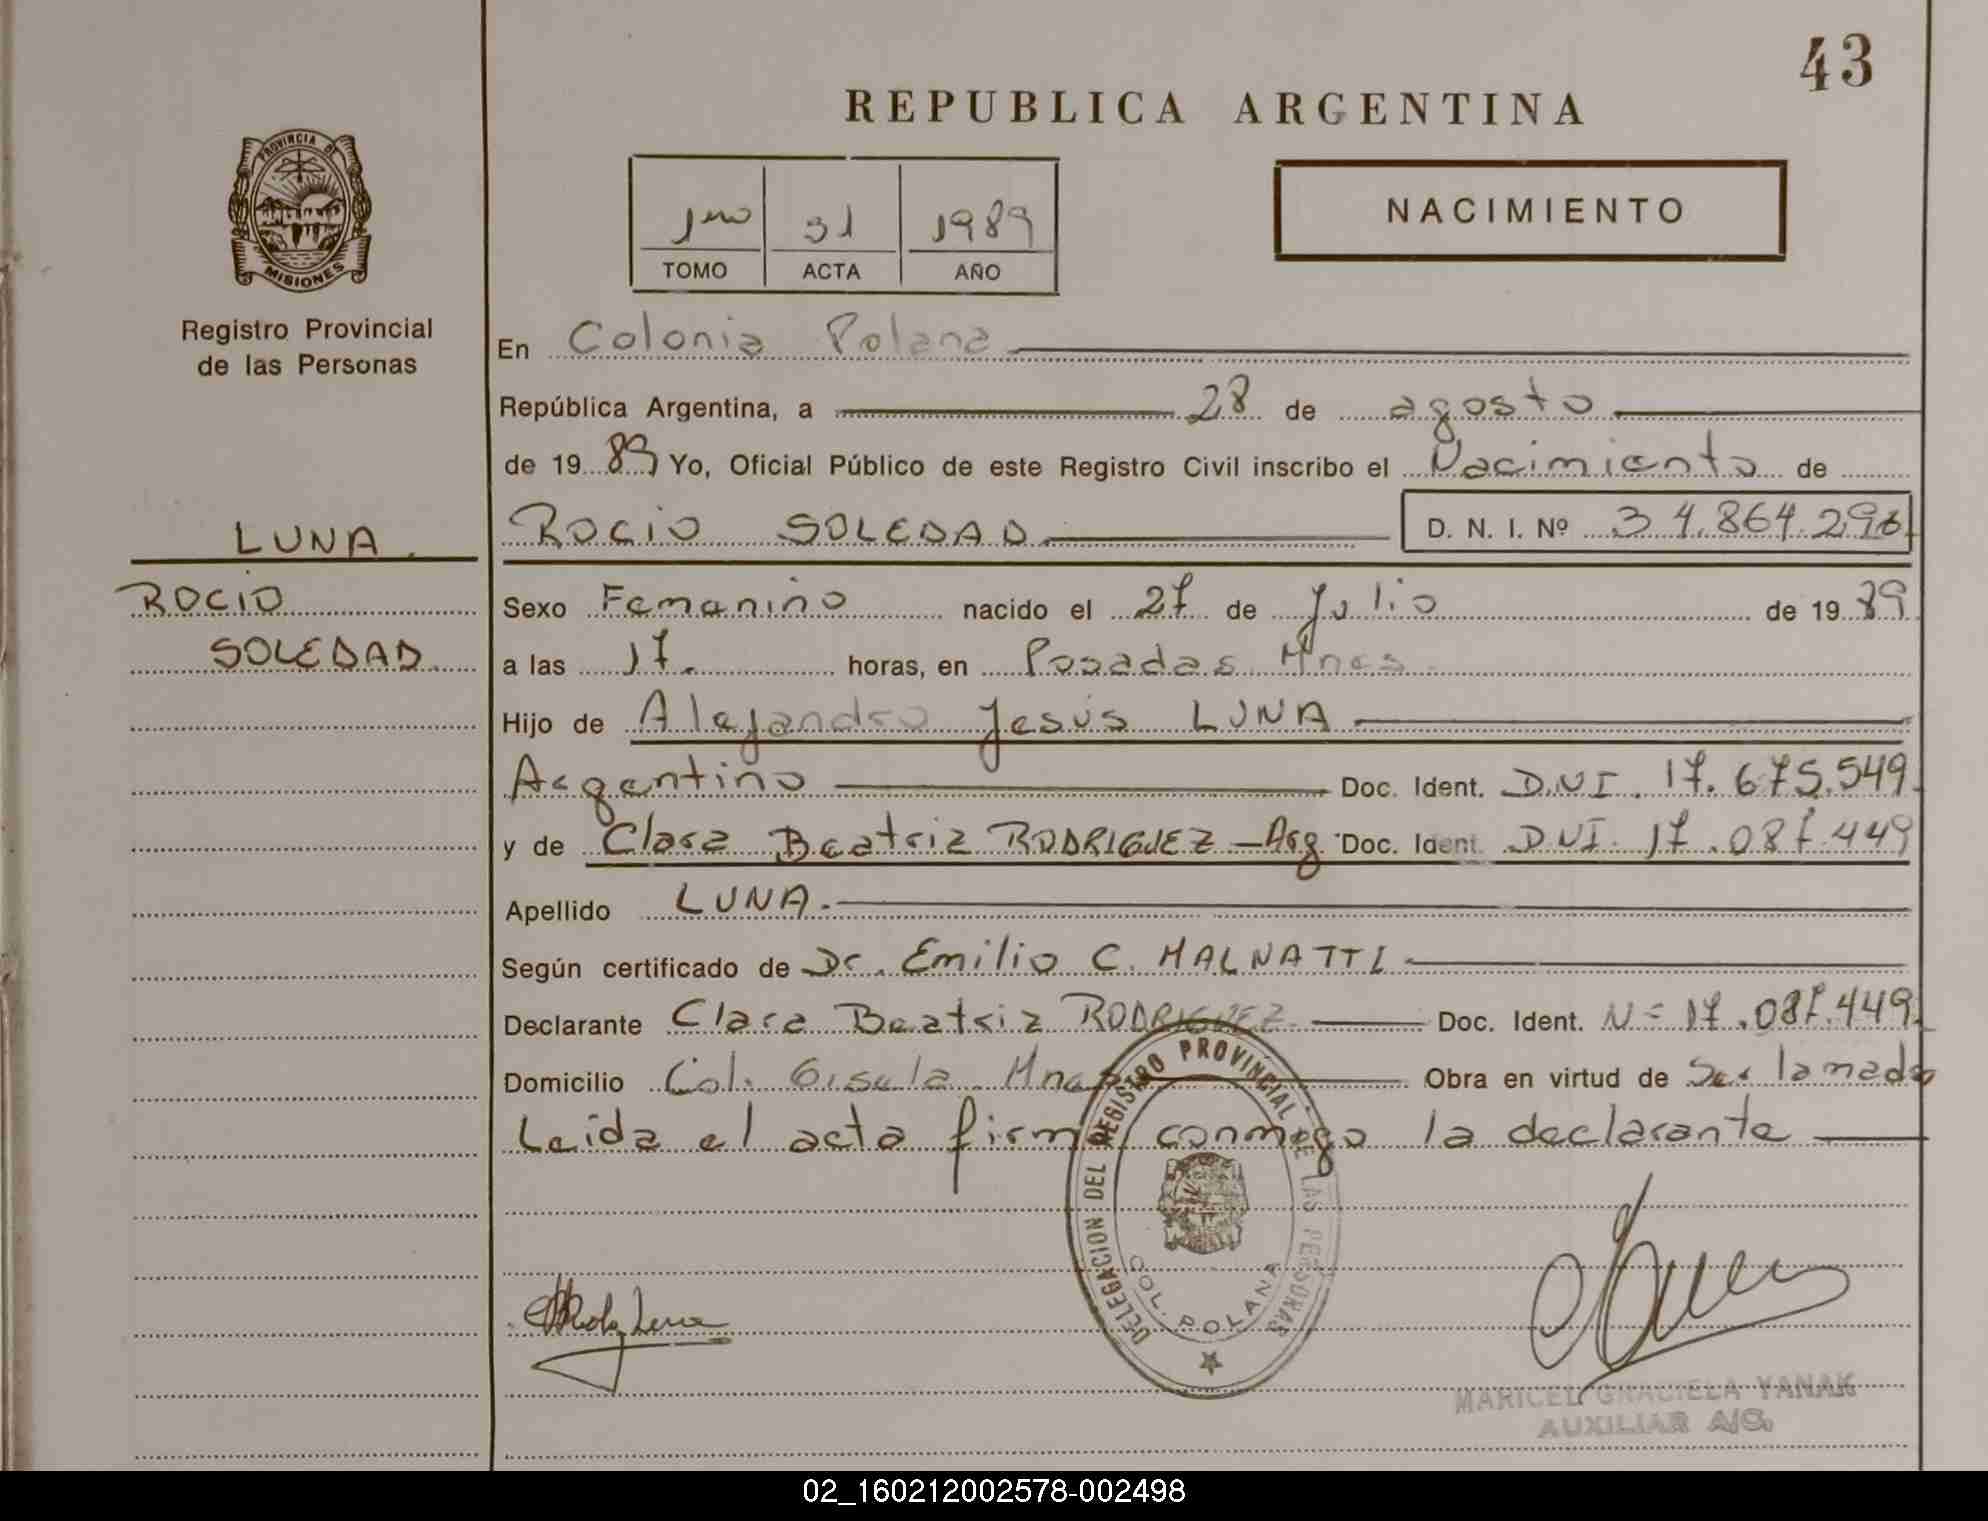 43
REPUBLICA ARGENTINA
PROVINCIA DE
MISIONES
Registro Provincial
de las Personas
1ro 31 1989
TOMO ACTA AÑO
NACIMIENTO
En Colonia Polana
República Argentina, a 28 de agosto
de 19 89 Yo, Oficial Público de este Registro Civil inscribo el Nacimiento de
LUNA.
ROCIO SOLEDAD D. N. I. Nº 34.864.296
ROCIO
SOLEDAD
Sexo Femenino nacido el 27 de Julio de 19 89
a las 17. horas, en Posadas Mnes.
Hijo de Alejandro Jesús LUNA
Argentino Doc. Ident. D.N.I. 17.675.549
y de Clara Beatriz RODRIGUEZ - Arg. Doc. Ident. D.N.I. 17.087.449
Apellido LUNA.
Según certificado de Dr. Emilio C. MALNATTI
Declarante Clara Beatriz RODRIGUEZ Doc. Ident. Nº 17.087.449
Domicilio Col. Gisela Mnes Obra en virtud de ser la madre
Leida el acta firma conmigo la declarante
DELEGACION DEL REGISTRO PROVINCIAL DE LAS PERSONAS
COL. POLANA
MARICEL GRACIELA YANAK
AUXILIAR A/C.
02_160212002578-002498